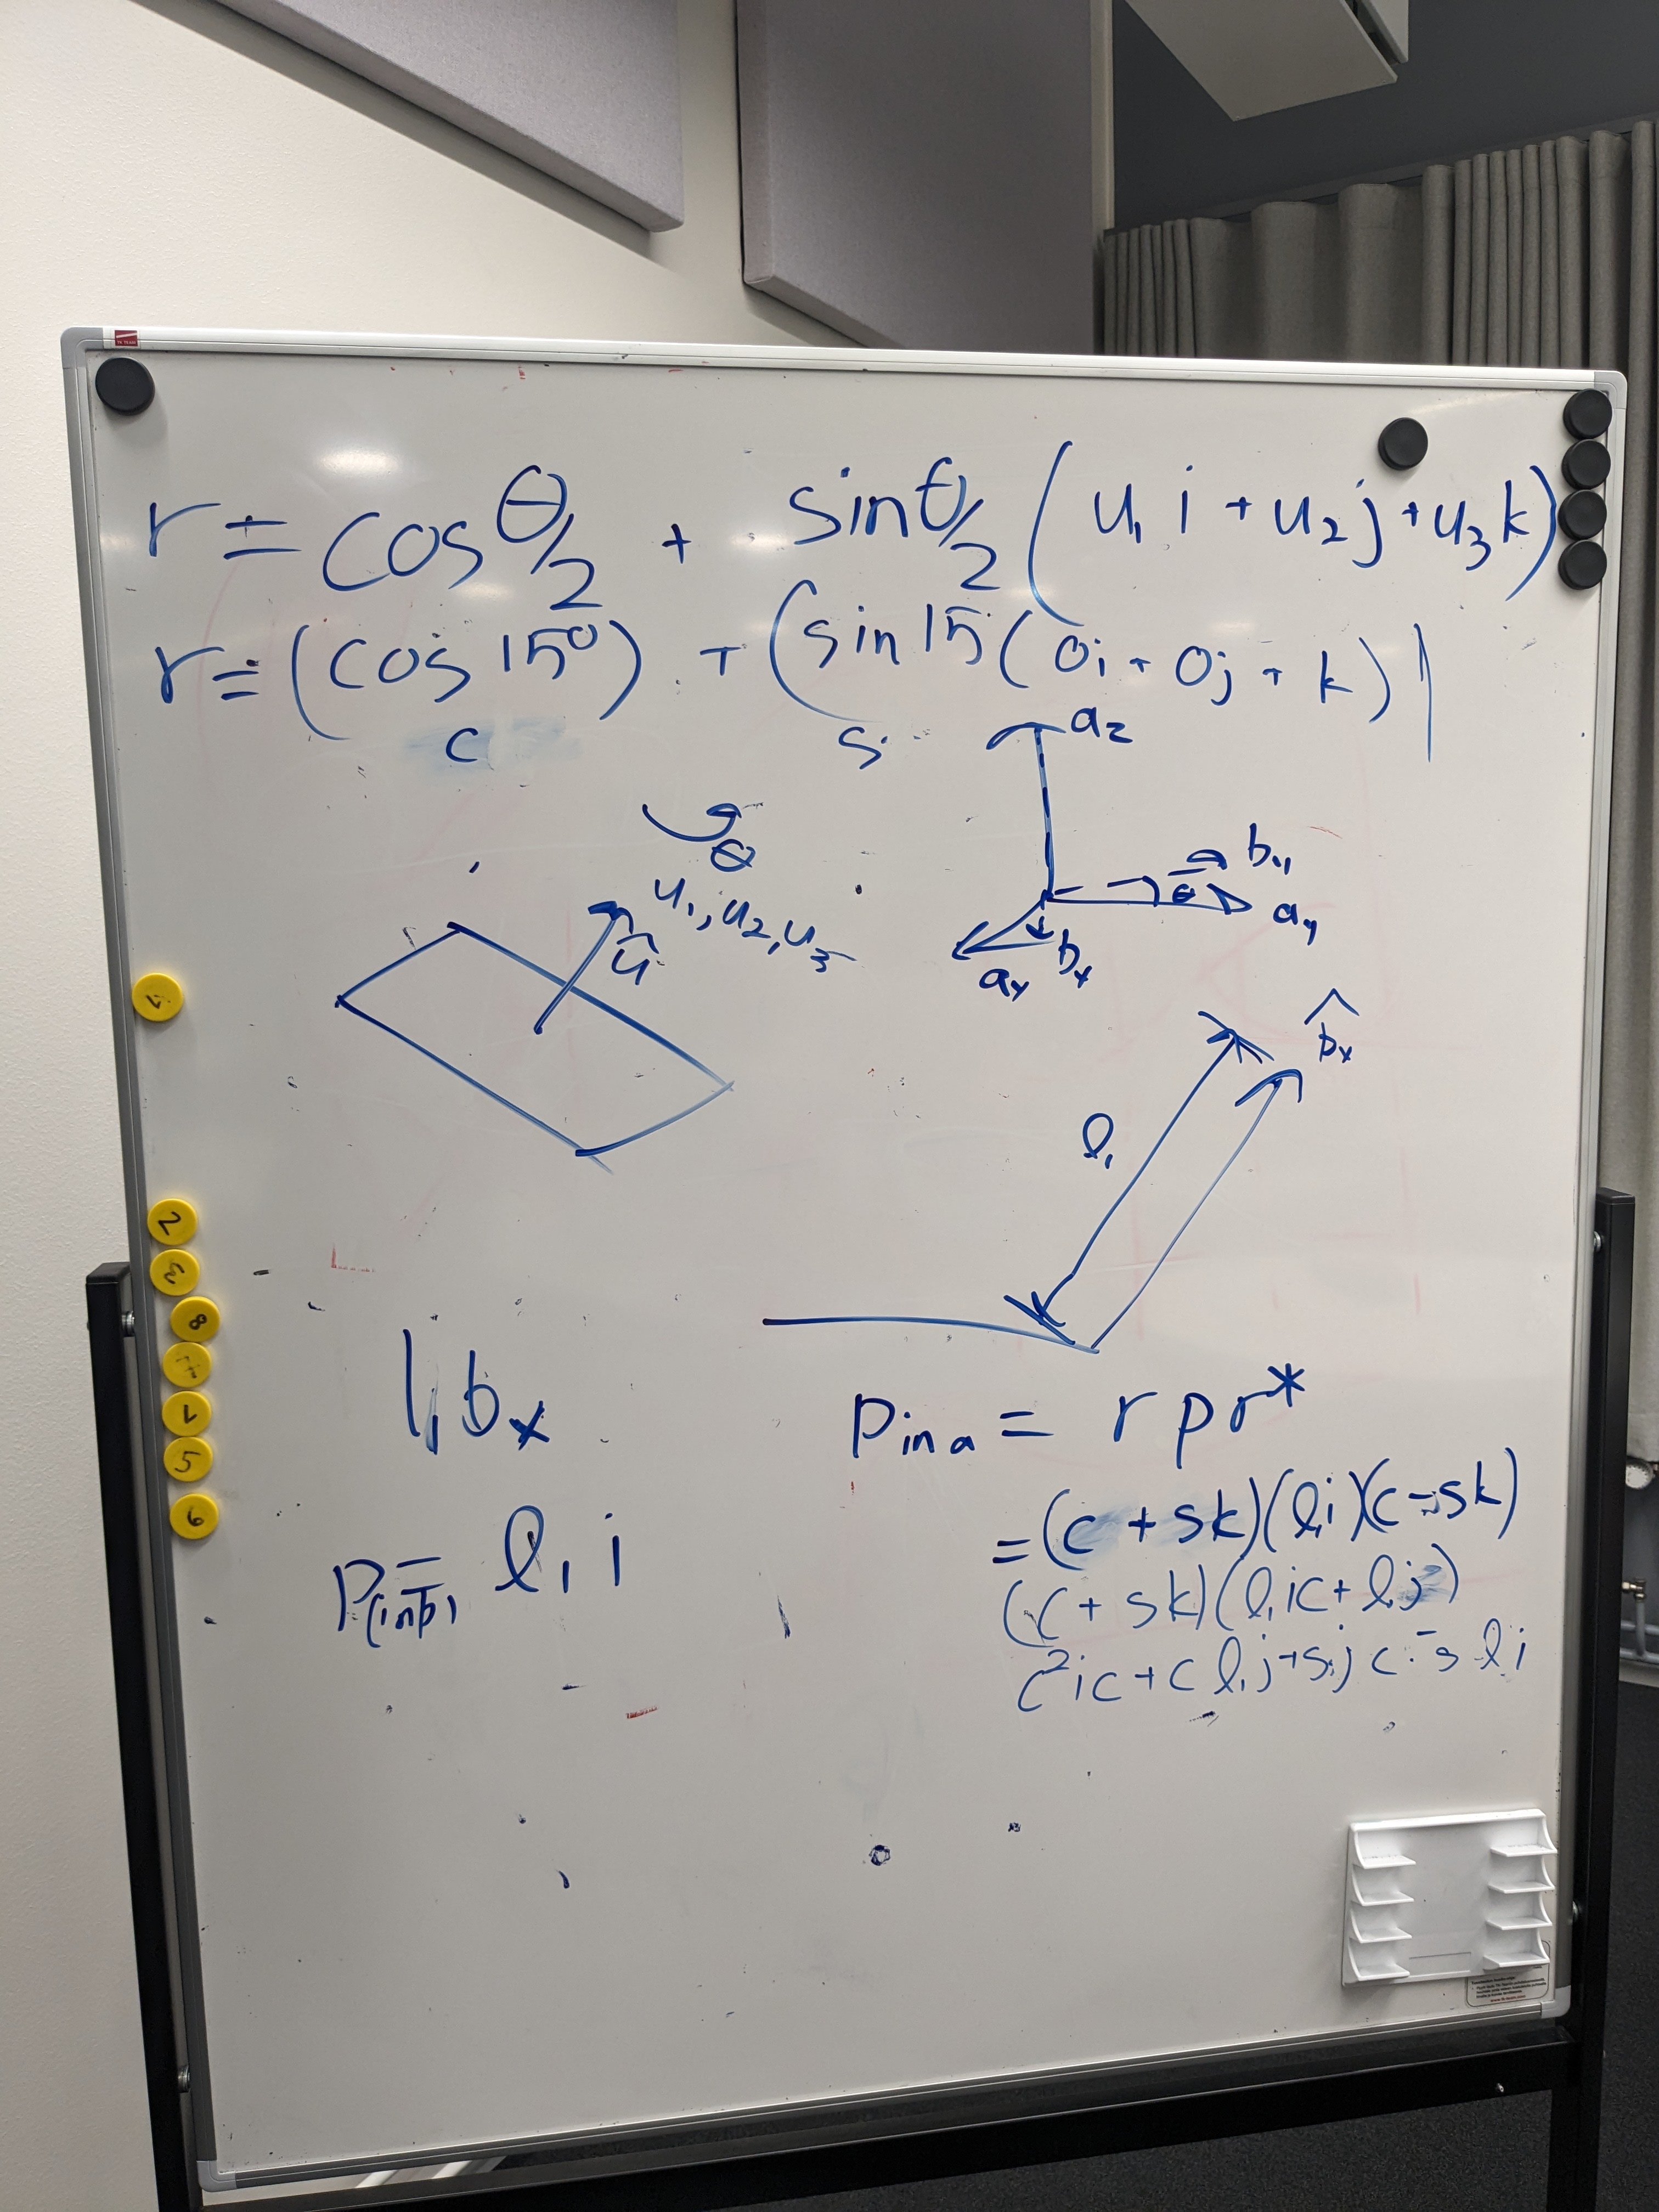 r = cos θ/2 + sin θ/2 (u₁ i + u₂ j + u₃ k)
r = (cos 15°) + (sin 15 (0i + 0j + k))
c s
a_z
θ
u₁, u₂, u₃
û
b_y
θ
a_y
b_x
a_x
b̂_x
l₁
l₁ b_x
P(in b) = l₁ i
P in a = r p r*
= (c + sk)(l₁i)(c - sk)
(c + sk)(l₁ic + l₁j)
c²ic + c l₁j + sjc - s l i
2
3
8
5
6